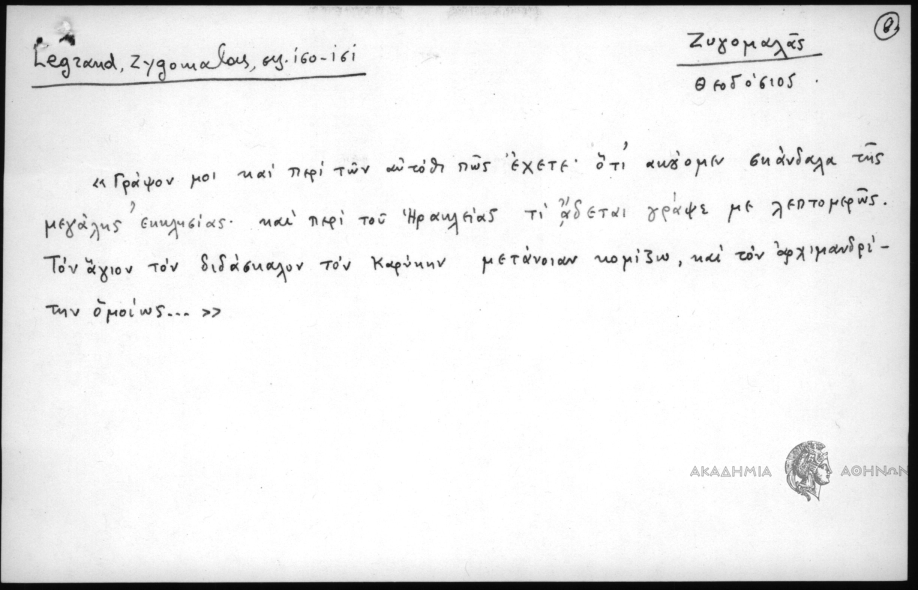 8.
Legrand, Zygomalas, σς. 150-151
Ζυγομαλᾶς
Θεοδόσιος.
«Γράψον μοι καὶ περὶ τῶν αὐτόθι πῶς ἔχετε· ὅτι ἀκούομεν σκάνδαλα τῆς
μεγάλης ἐκκλησίας· καὶ περὶ τοῦ Ἡρακλείας τί ᾄδεται γράψε με λεπτομερῶς.
Τὸν ἅγιον τὸν διδάσκαλον τὸν Καρύκην μετάνοιαν κομίζω, καὶ τὸν ἀρχιμανδρί-
την ὁμοίως... »
ΑΚΑΔΗΜΙΑ ΑΘΗΝΩΝ